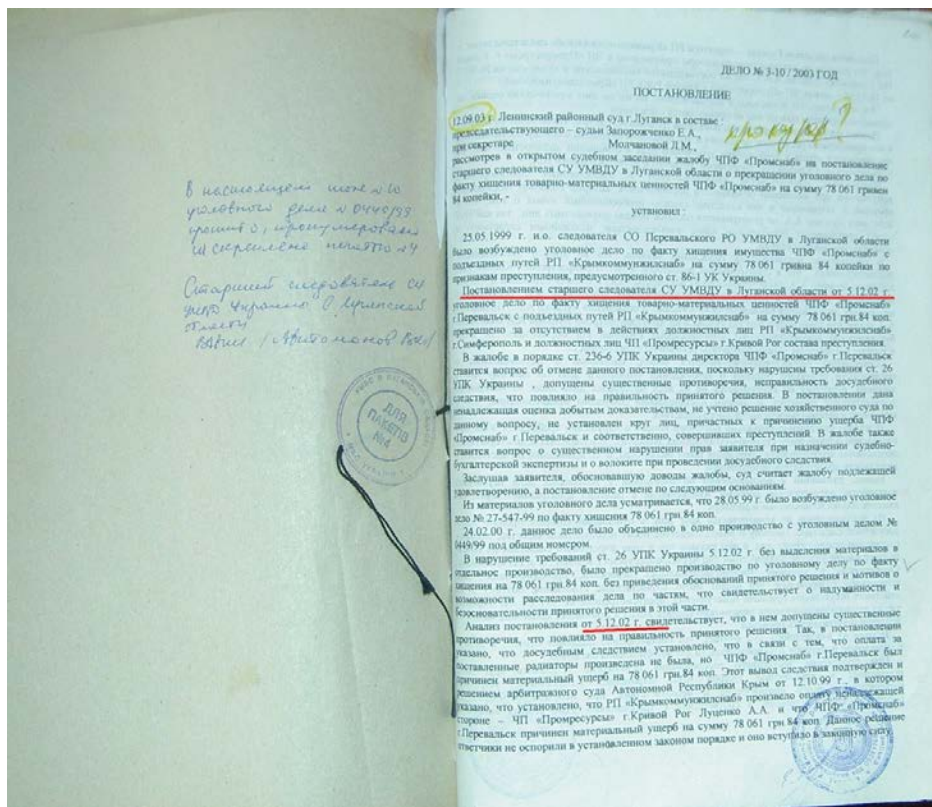 В настоящем томе №10
уголовного дела № 0449/99
прошито, пронумеровано
и скреплено печатью №4
Старший следователь СУ
УМВД Украины в Луганской
области
ДЛЯ
ПАКЕТІВ
№4
ДЕЛО № 3-10 / 2003 ГОД
ПОСТАНОВЛЕНИЕ
12.09.03 г. Ленинский районный суд г.Луганск в составе :
председательствующего – судьи Запорожченко Е.А.,
прокурор?
при секретаре Молчановой Л.М.,
рассмотрев в открытом судебном заседании жалобу ЧПФ «Промснаб» на постановление
старшего следователя СУ УМВДУ в Луганской области о прекращении уголовного дела по
факту хищения товарно-материальных ценностей ЧПФ «Промснаб» на сумму 78 061 гривен
84 копейки, -
установил :
25.05.1999 г. и.о. следователя СО Перевальского РО УМВДУ в Луганской области
было возбуждено уголовное дело по факту хищения имущества ЧПФ «Промснаб» с
подъездных путей РП «Крымкоммунжилснаб» на сумму 78 061 гривна 84 копейки по
признакам преступления, предусмотренного ст. 86-1 УК Украины.
Постановлением старшего следователя СУ УМВДУ в Луганской области от 5.12.02 г.
уголовное дело по факту хищения товарно-материальных ценностей ЧПФ «Промснаб»
г.Перевальск с подъездных путей РП «Крымкоммунжилснаб» на сумму 78 061 грн.84 коп.
прекращено за отсутствием в действиях должностных лиц РП «Крымкоммунжилснаб»
г.Симферополь и должностных лиц ЧП «Промресурсы» г.Кривой Рог состава преступления.
В жалобе в порядке ст. 236-6 УПК Украины директора ЧПФ «Промснаб» г.Перевальск
ставится вопрос об отмене данного постановления, поскольку нарушены требования ст. 26
УПК Украины , допущены существенные противоречия, неправильность досудебного
следствия, что повлияло на правильность принятого решения. В постановлении дана
ненадлежащая оценка добытым доказательствам, не учтено решение хозяйственного суда по
данному вопросу, не установлен круг лиц, причастных к причинению ущерба ЧПФ
«Промснаб» г.Перевальск и соответственно, совершивших преступлений. В жалобе также
ставится вопрос о существенном нарушении прав заявителя при назначении судебно-
бухгалтерской экспертизы и о волоките при проведении досудебного следствия.
Заслушав заявителя, обосновавшую доводы жалобы, суд считает жалобу подлежащей
удовлетворению, а постановление отмене по следующим основаниям.
Из материалов уголовного дела усматривается, что 28.05.99 г. было возбуждено уголовное
дело № 27-547-99 по факту хищения 78 061 грн.84 коп.
24.02.00 г. данное дело было объединено в одно производство с уголовным делом №
0449/99 под общим номером.
В нарушение требований ст. 26 УПК Украины 5.12.02 г. без выделения материалов в
отдельное производство, было прекращено производство по уголовному делу по факту
хищения на 78 061 грн.84 коп. без приведения обоснований принятого решения и мотивов о
возможности расследования дела по частям, что свидетельствует о надуманности и
безосновательности принятого решения в этой части.
Анализ постановления от 5.12.02 г. свидетельствует, что в нем допущены существенные
противоречия, что повлияло на правильность принятого решения. Так, в постановлении
указано, что досудебным следствием установлено, что в связи с тем, что оплата за
поставленные радиаторы произведена не была, но ЧПФ «Промснаб» г.Перевальск был
причинен материальный ущерб на 78 061 грн.84 коп. Этот вывод следствия подтвержден и
решением арбитражного суда Автономной Республики Крым от 12.10.99 г., в котором
указано, что установлено, что РП «Крымкоммунжилснаб» произвело оплату ненадлежащей
стороне – ЧП «Промресурсы» г.Кривой Рог Луценко А.А. и что ЧПФ «Промснаб»
г.Перевальск причинен материальный ущерб на сумму 78 061 грн.84 коп. Данное решение
ответчики не оспорили в установленном законом порядке и оно вступило в законную силу.